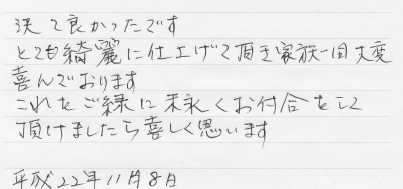 決て良かったです
とても綺麗に仕上げて頂き家族一同大変
喜んでおります
これをご縁に末永くお付合をして
頂けましたら喜しく思います
平成22年11月8日